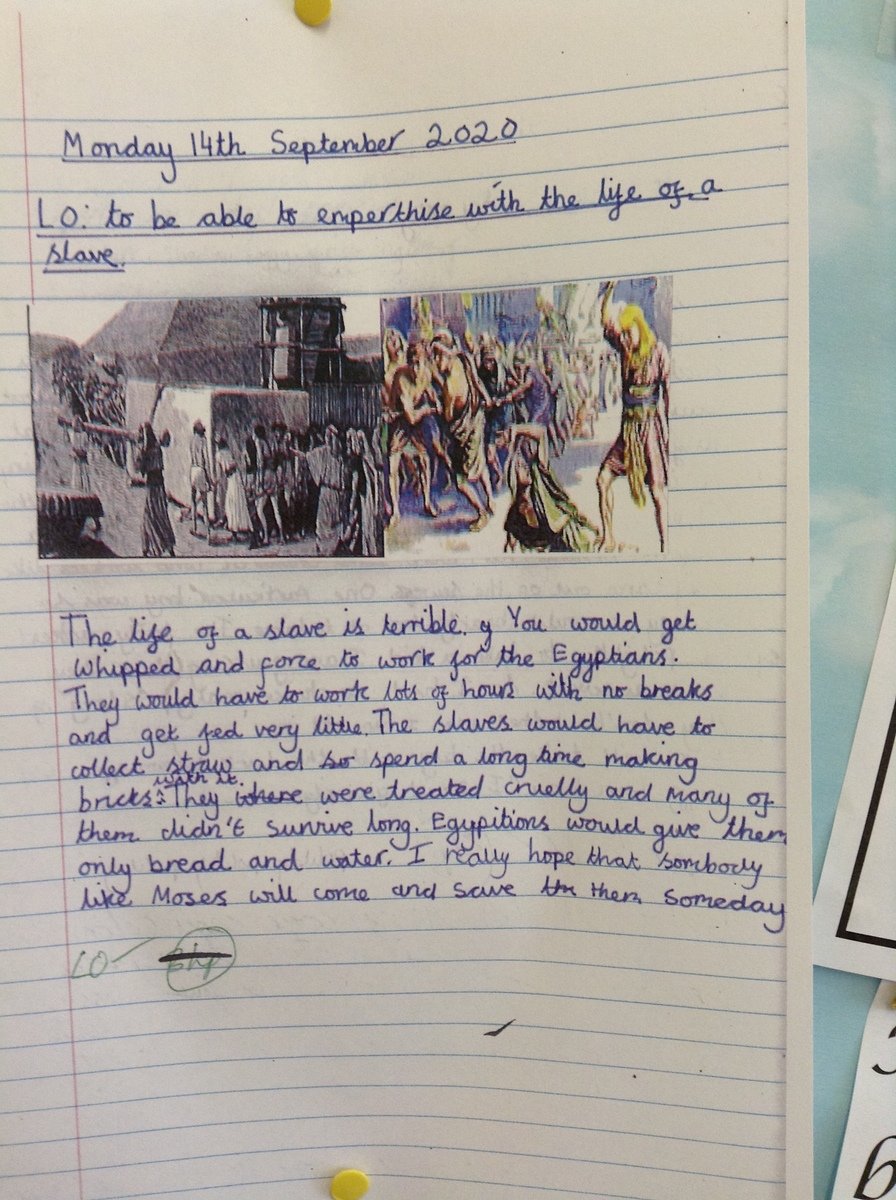 Monday 14th September 2020
LO: to be able to emperthise with the life of a
slave.
The life of a slave is terrible. y You would get
whipped and force to work for the Egyptians.
They would have to work lots of hours with no breaks
and get fed very little. The slaves would have to
collect straw and so spend a long time making
with it.
bricks. They where were treated cruelly and many of
them didn't survive long. Egypitions would give them
only bread and water. I really hope that sombody
like Moses will come and save thm them someday
LO